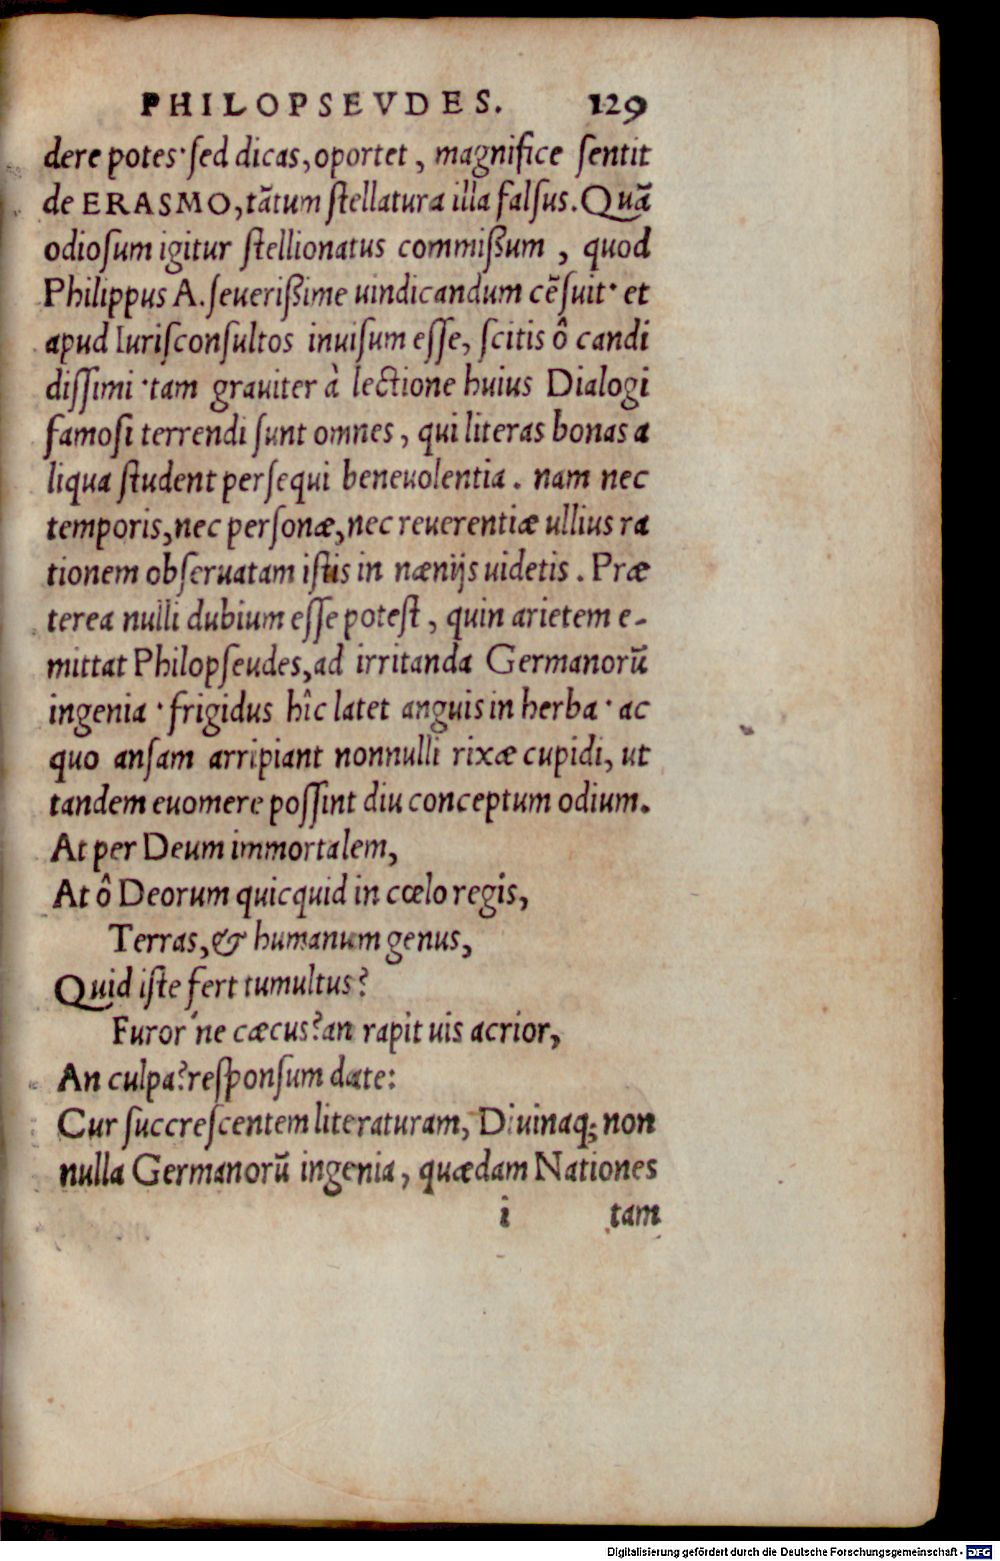 PHILOPSEVDES. 129
dere potes·sed dicas,oportet, magnifice sentit
de ERASMO,tãtum stellatura illa falsus.Quã
odiosum igitur stellionatus commißum, quod
Philippus A.seuerißime uindicandum cẽsuit· et
apud Iurisconsultos inuisum esse, scitis ô candi
dissimi ·tam grauiter à lectione huius Dialogi
famosi terrendi sunt omnes, qui literas bonas a
liqua student persequi beneuolentia. nam nec
temporis,nec personæ,nec reuerentiæ ullius ra
tionem obseruatam istis in nænijs uidetis. Præ
terea nulli dubium esse potest, quin arietem e-
mittat Philopseudes,ad irritanda Germanorũ
ingenia ·frigidus hîc latet anguis in herba· ac
quo ansam arripiant nonnulli rixæ cupidi, ut
tandem euomere possint diu conceptum odium.
At per Deum immortalem,
At ô Deorum quicquid in cœlo regis,
Terras,& humanum genus,
Quid iste fert tumultus?
Furor'ne cæcus?an rapit uis acrior,
An culpa?responsum date:
Cur succrescentem literaturam, Diuinaq; non
nulla Germanorũ ingenia, quædam Nationes
i tam
Digitalisierung gefördert durch die Deutsche Forschungsgemeinschaft - DFG